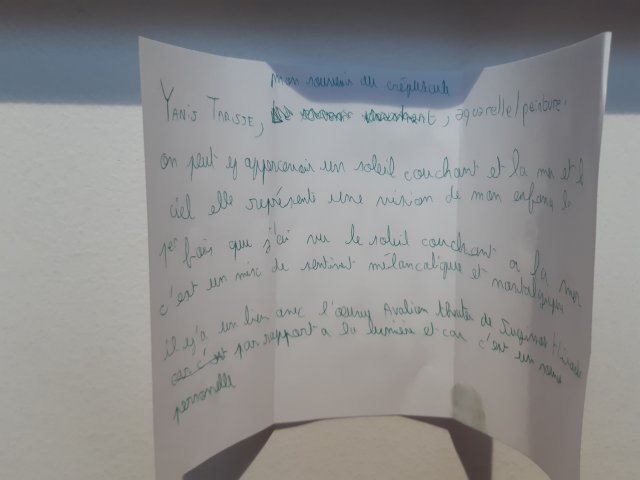 mon souvenir du crépuscule
Yanis Tarisse, aquarelle/peinture.
on peut y appercevoir un soleil couchant et la mer et le
ciel elle représente une vision de mon enfance la
1er fois que j'ai vu le soleil couchant a la mer
c'est un mix de sentiment mélancolique et nostalgique
il y'a un lien avec l'oeuvre Avalon theater de
par rapport a la lumière et car c'est un
personnelle